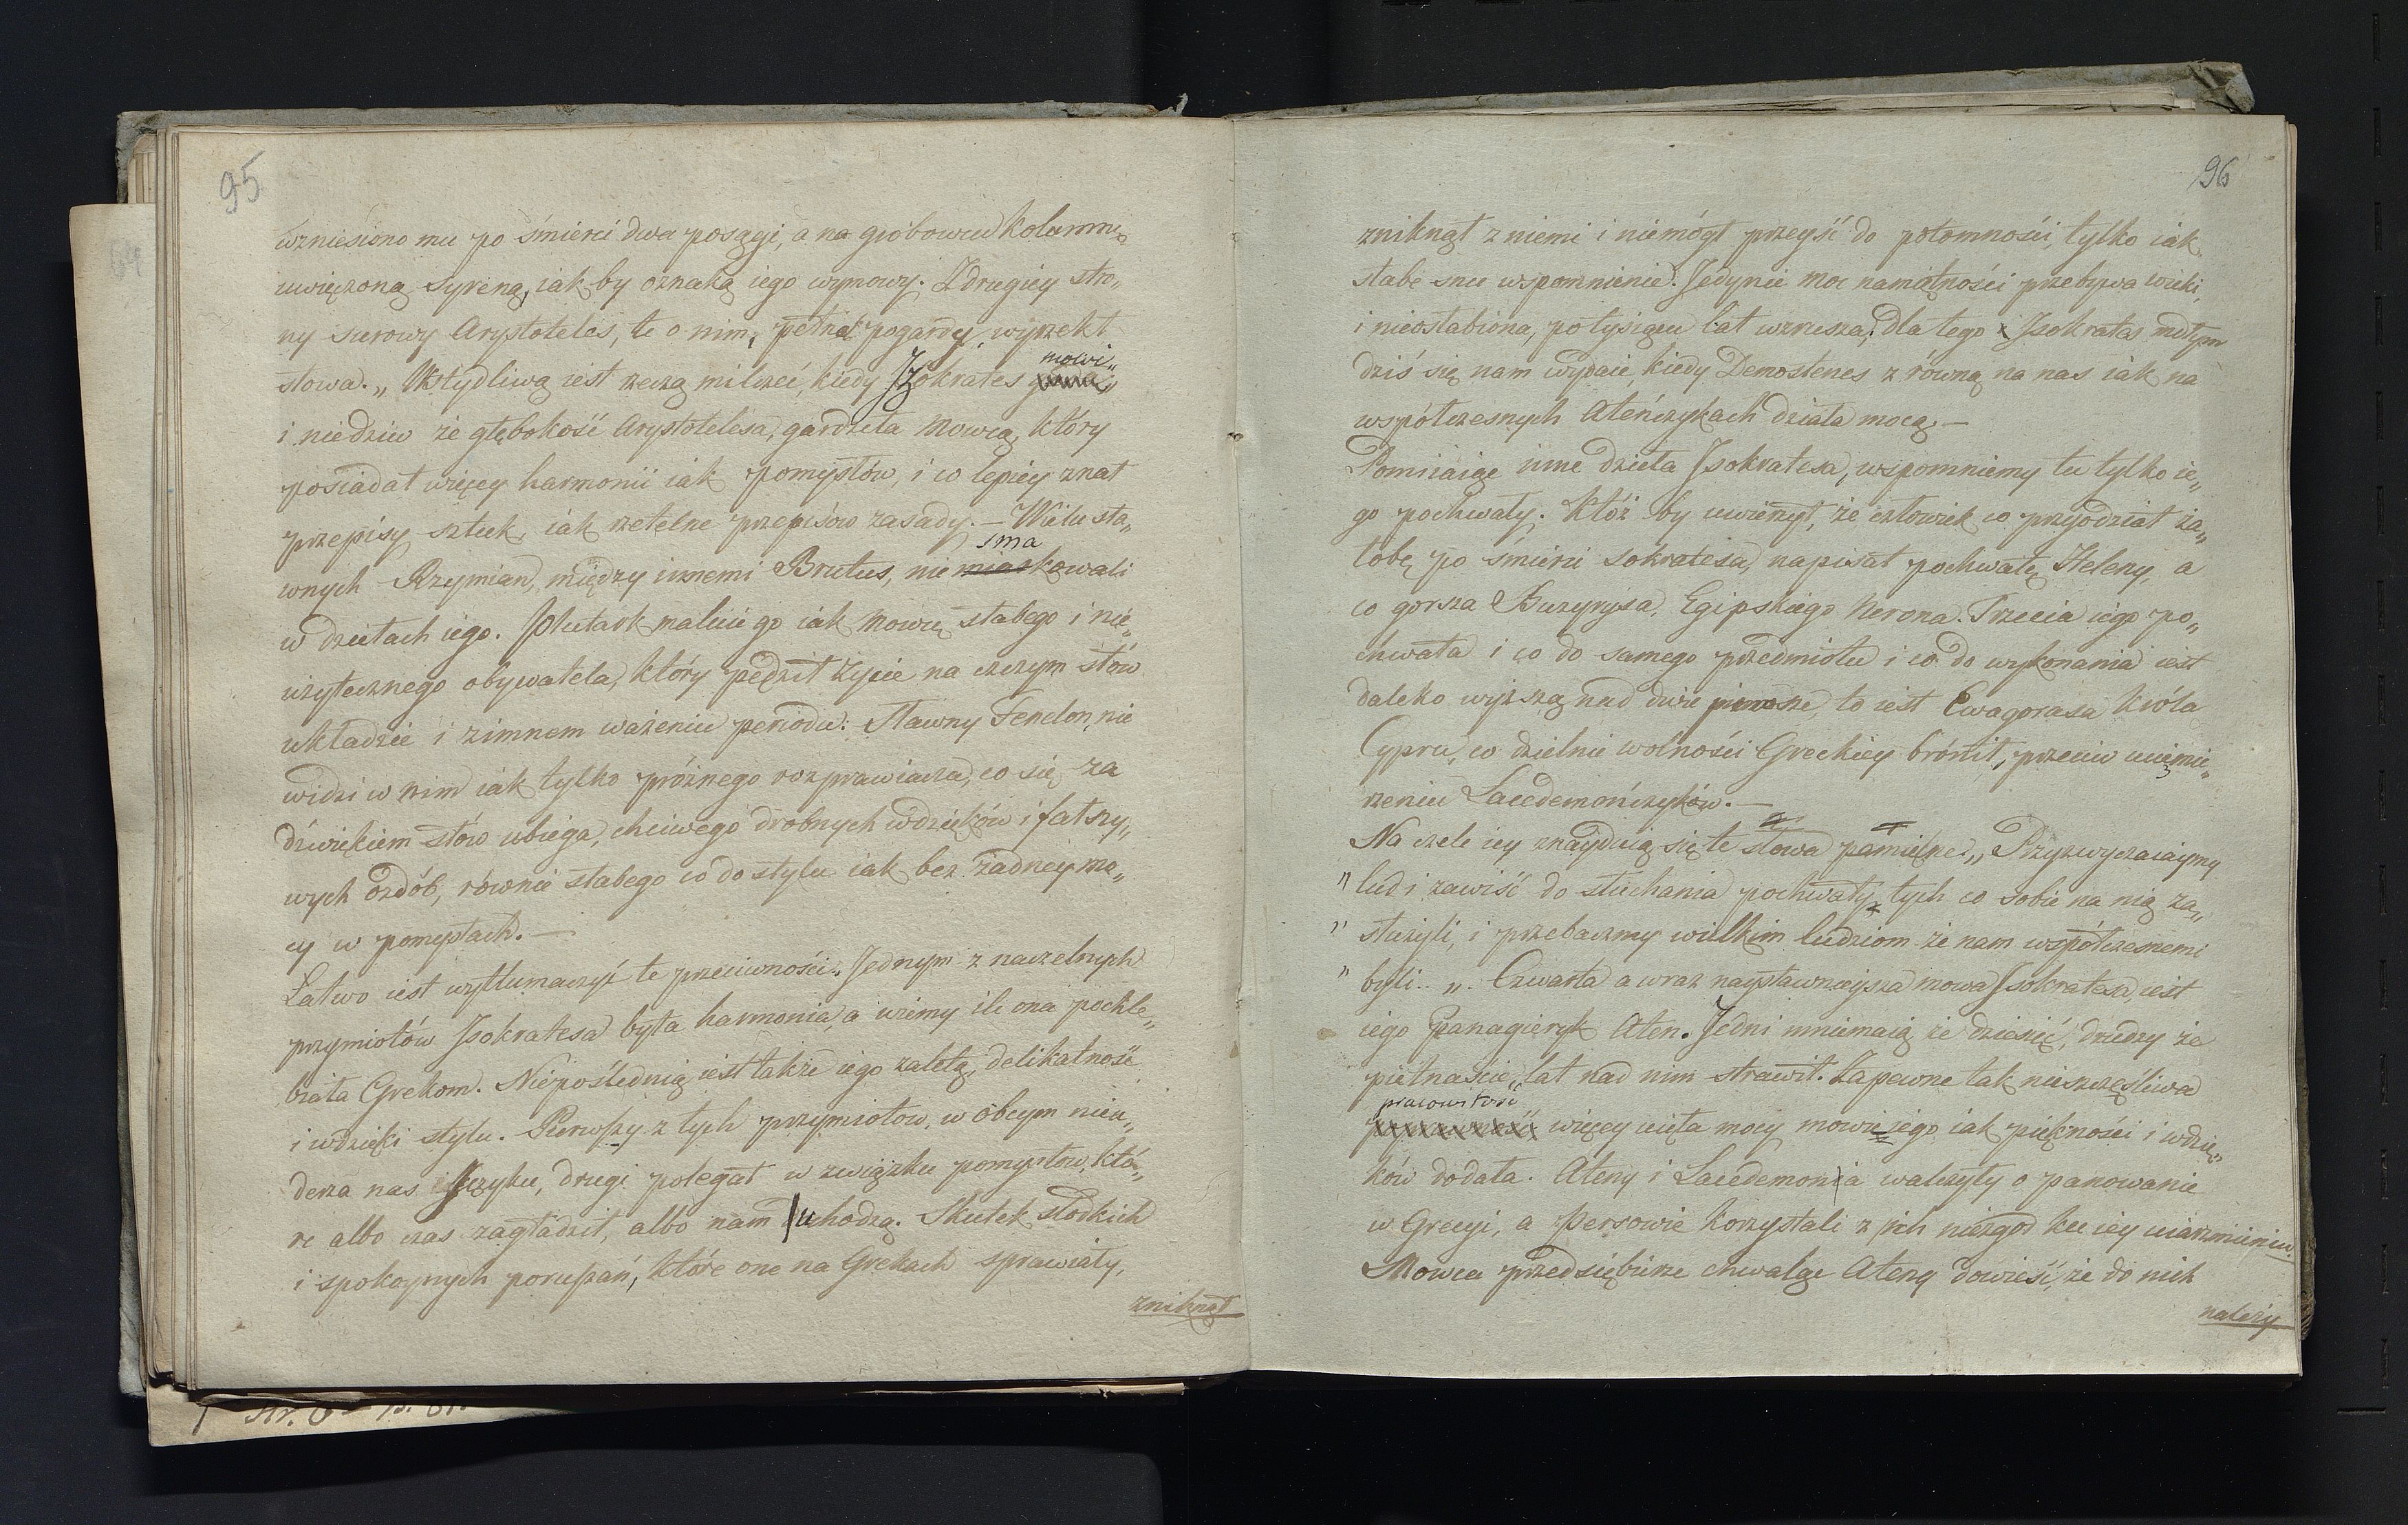 95
wzniesiono mu po śmierci dwa posągi, a na grobowcu kolumnę
uwięzoną syreną, iak by oznaką iego wymowy. Z drugiey stro„
ny surowy Arystoteles, te o nim, pełne pogardy, wyrzekł
słowa. „Wstydliwą iest rzeczą milczeć, kiedy Izokrates mowi„
i niedziw że głębokość Arystotelesa, gardziła Mowcą, który
posiadał więcey harmonii iak pomysłów, i co lepiey znał
przepisy sztuk, iak rzetelne przepisów zasady. — Wielu sła„
wnych Rzymian, między innemi Brutus, nie smakowali
w dziełach iego. Plutark maluie go iak Mowcę słabego i nie„
użytecznego obywatela, który pędził życie na czczym słów
układzie i zimnem ważeniu periodu: Sławny Fenelon, nie
widzi w nim iak tylko próżnego rozprawiacza, co się za
dźwiękiem słów ubiega, chciwego drobnych wdzięków i fałszy„
wych ozdób, równie słabego co do stylu iak bez żadney mo„
cy w pomysłach. —
Łatwo iest wytłumaczyć te przeciwności. Jednym z naczelnych
przymiotów Isokratesa była harmonia, a wiemy ile ona pochle„
biała Grekom. Niepoślednią iest także iego zaletą, delikatność
i wdzięki stylu. Pierwszy z tych przymiotów, w obcym nieu„
derza nas ięzyku, drugi polegał w związku pomysłów, któ„
re albo czas zagładził, albo nam uchodzą. Skutek słodkich
i spokoynych poruszań, które one na Grekach sprawiały,
zniknął
96
zniknął z niemi i niemógł przeyść do potomności, tylko iak
słabe snu wspomnienie. Jedynie moc namiętności przebywa wieki,
i nieosłabiona, po tysiącu lat wzrusza; dla tego Isokrates mdłym
dziś się nam wydaie, kiedy Demostenes z równą na nas iak na
współczesnych Ateńczykach działa mocą. —
Pomiiaiąc inne dzieła Isokratesa, wspomniemy tu tylko ie„
go pochwały. Któż by uwierzył, że człowiek co przyodział ża„
łobę po śmierci Sokratesa, napisał pochwałę Heleny, a
co gorsza Buzyrysa, Egipskiego Nerona. Trzecia iego po„
chwała i co do samego przedmiotu i co do wykonania iest
daleko wyższą nad dwie pierwsze, to iest Ewagorasa króla
Cypru, co dzielnie wolności Greckiey brónił, przeciw uciemię„
żeniu Lacedemończyków. —
Na czele iey znayduią się te słowa pamiętne „Przyzwyczaiaymy
„ lud i zawiść do słuchania pochwały tych co sobie na nią za„
„ służyli, i przebaczmy wielkim ludziom że nam współczesnemi
„ byli.. „. Czwarta a wraz naysławnieysza mowa Isokratesa, iest
iego Panagieryk Aten. Jedni mniemaią że dziesięć, drudzy że
piętnaście, lat nad nim strawił. Zapewne tak nieszczęśliwa
pracowitość więcey uięła mocy mowie iego iak piękności i wdzię„
ków dodała. Ateny i Lacedemonia walczyły o panowanie
w Grecyi, a Persowie korzystali z ich niezgod ku iey uiarzmieniu.
Mowca przedsiębierze chwaląc Ateny dowieść, że do nich
należy